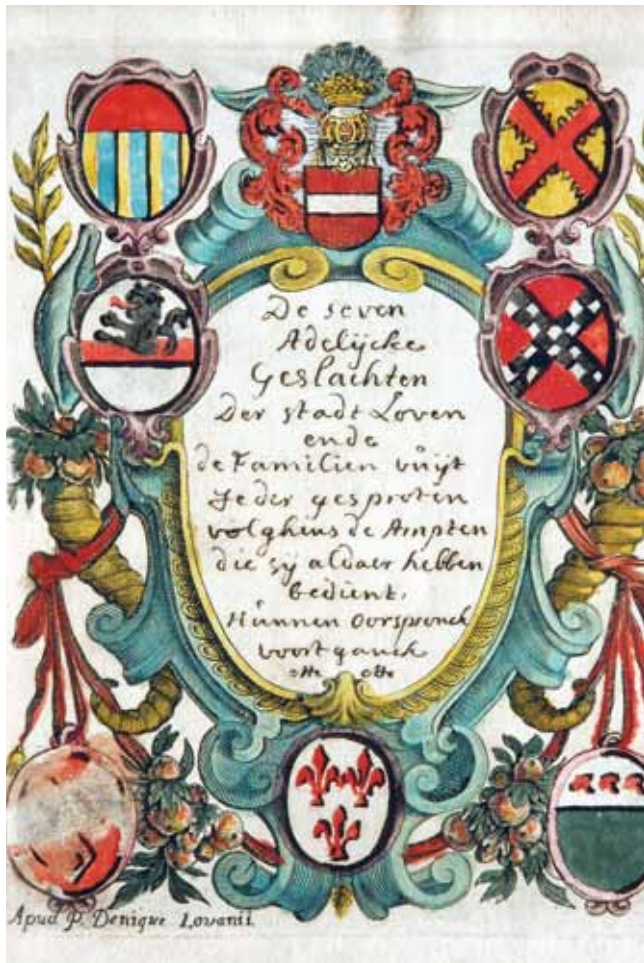 De seven
Adelijcke
Geslachten
Der stadt Loven
ende
de Familien vŭijt
Jeder gesproten
volghens de Ampten
die sij aldaer hebben
bedient,
Hŭnnen Oorspronck
voortganck
etc etc
Apud P. Denique Lovanii.